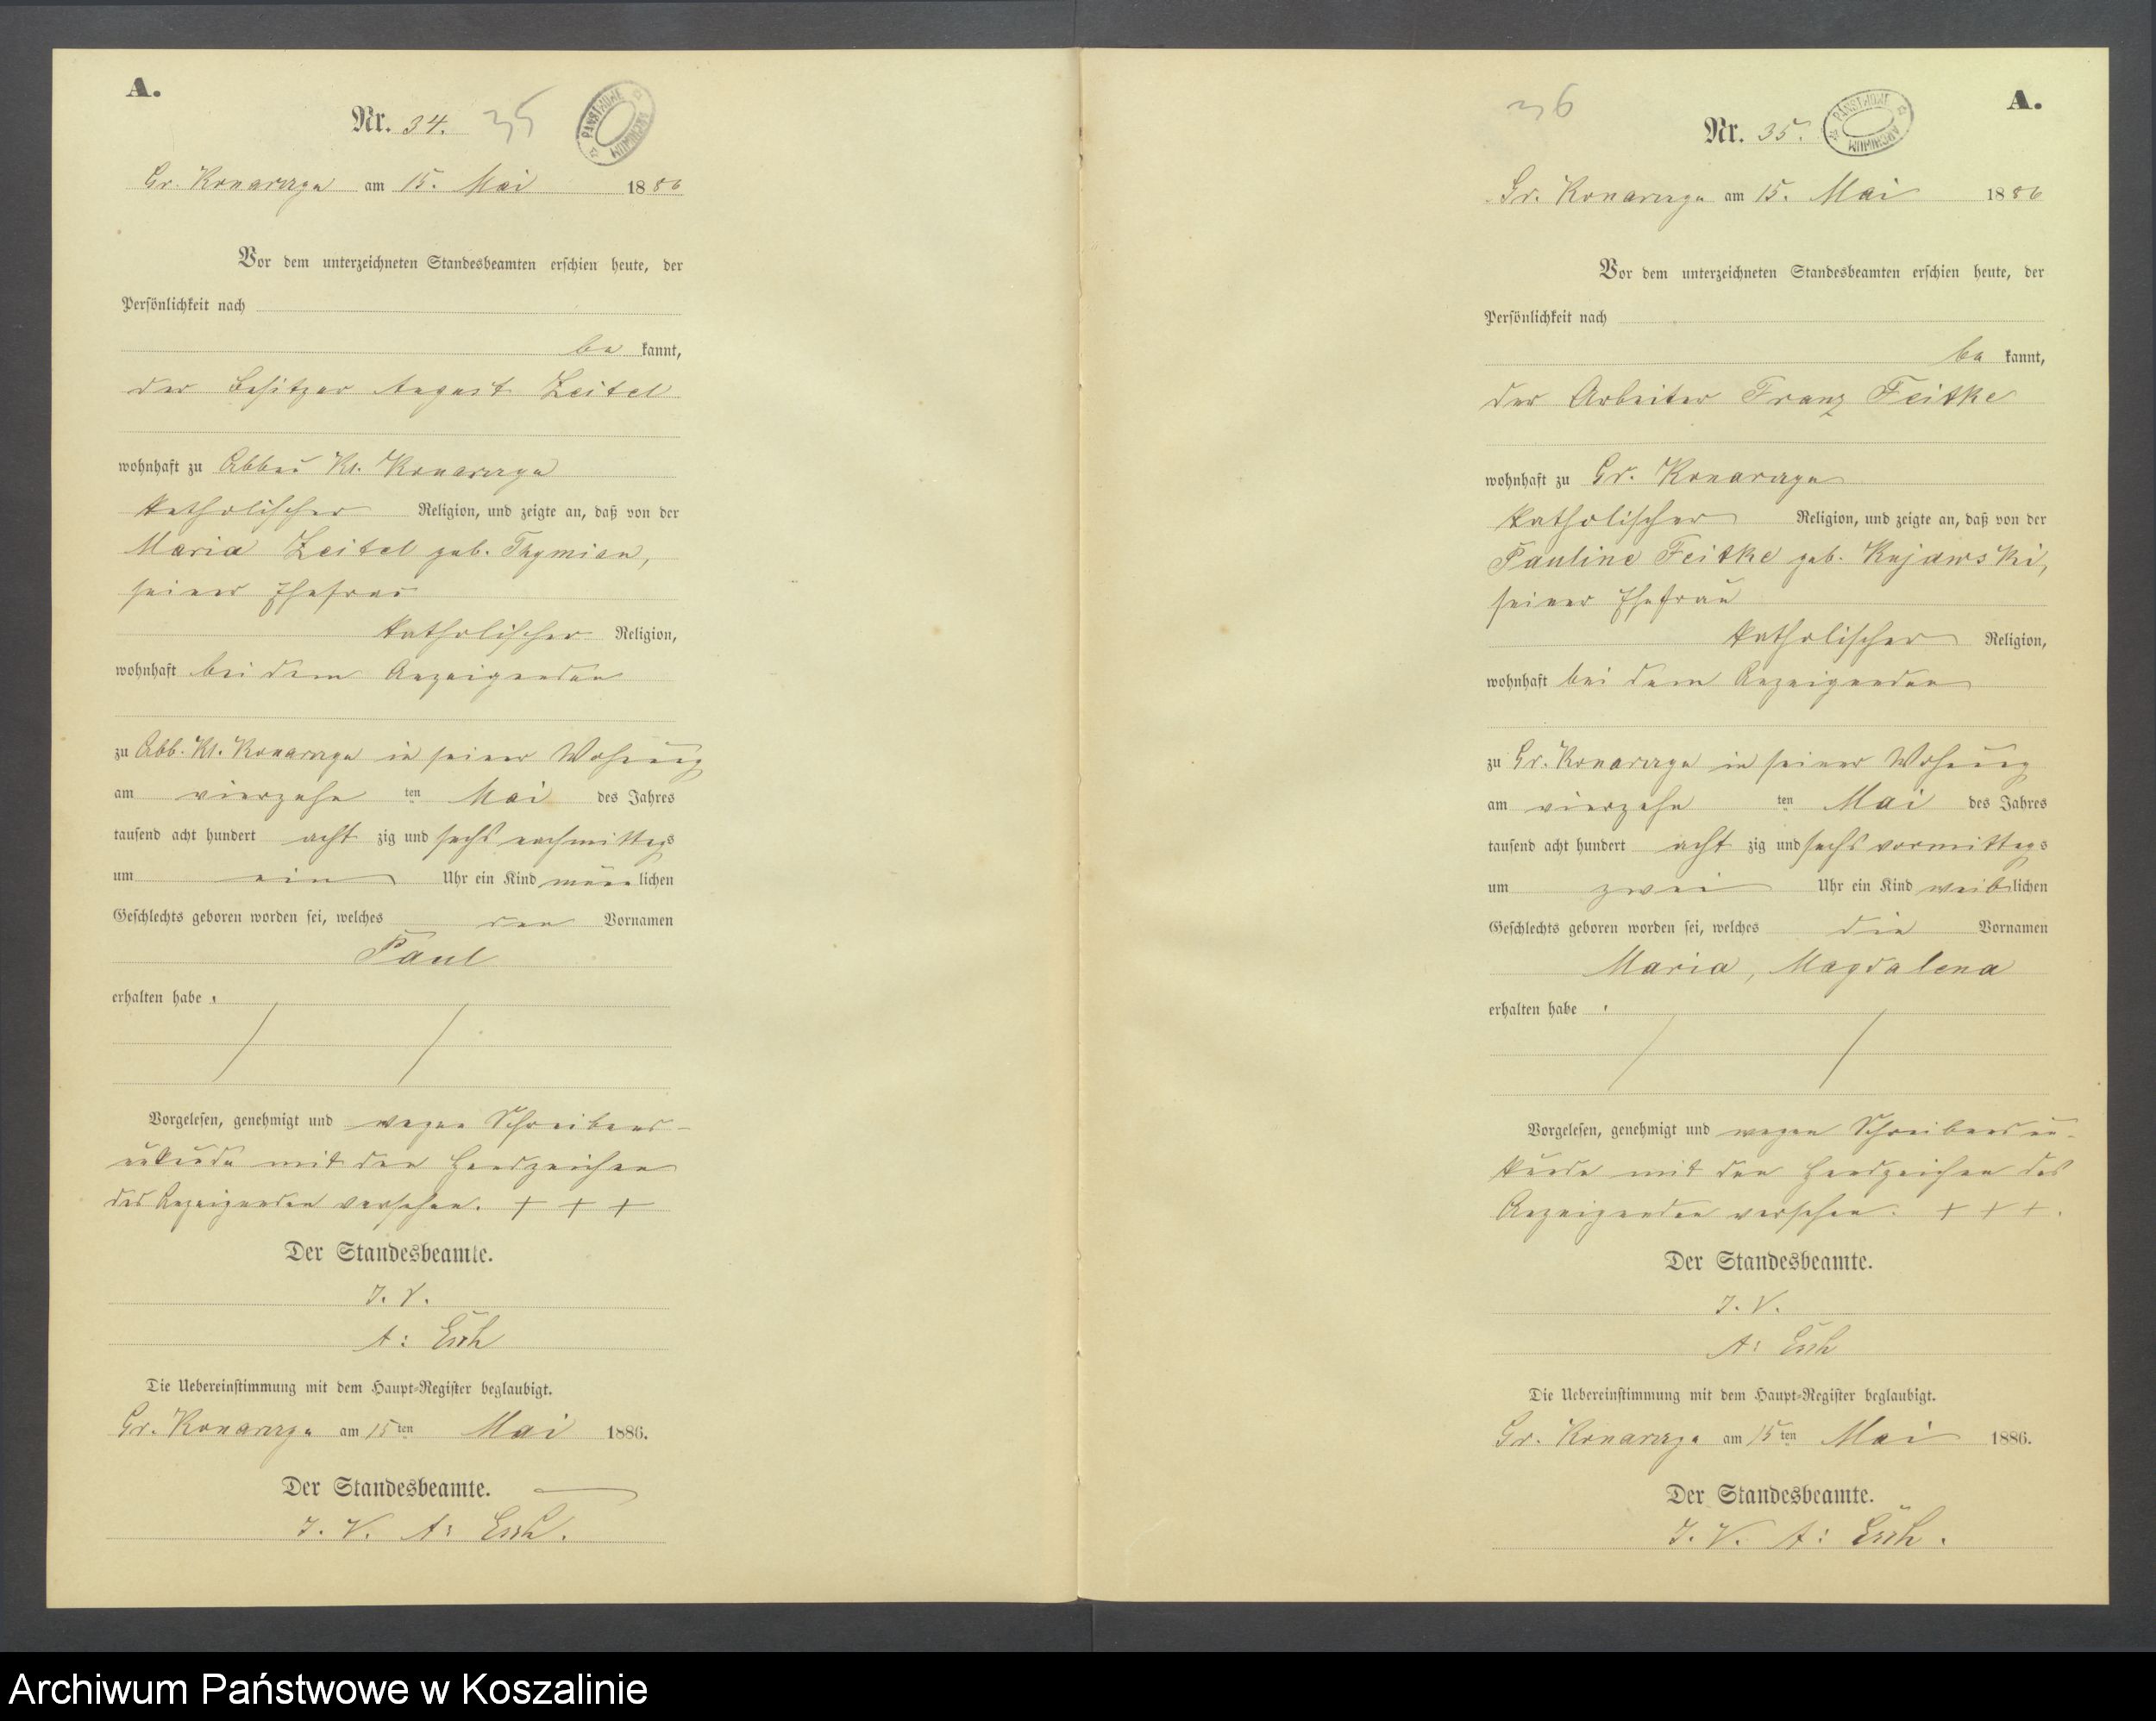 A.
Nr. 34. 35
PAŃSTWOWE ARCHIWUM
Gr. Konarczyn am 15. Mai 1886
Vor dem unterzeichneten Standesbeamten erschien heute, der
Persönlichkeit nach
be kannt,
der Besitzer August Zeitel
wohnhaft zu Abbau Kl. Konarczyn
katholischer Religion, und zeigte an, daß von der
Maria Zeitel geb. Thymian,
seiner Ehefrau
katholischer Religion,
wohnhaft bei dem Anzeigenden
zu Abb. Kl. Konarczyn in seiner Wohnung
am vierzehn ten Mai des Jahres
tausend acht hundert acht zig und sechs nachmittags
um ein Uhr ein Kind männ lichen
Geschlechts geboren worden sei, welches den Vornamen
Paul
erhalten habe.
Vorgelesen, genehmigt und wegen Schreibens-
unkunde mit den Handzeichen
des Anzeigenden versehen. + + +
Der Standesbeamte.
I. V.
A: Esch
Die Uebereinstimmung mit dem Haupt-Register beglaubigt.
Gr. Konarczyn am 15 ten Mai 1886.
Der Standesbeamte.
I. V. A: Esch.
36 A.
Nr. 35.
PAŃSTWOWE ARCHIWUM
Gr. Konarczyn am 15. Mai 1886
Vor dem unterzeichneten Standesbeamten erschien heute, der
Persönlichkeit nach
be kannt,
der Arbeiter Franz Feitke
wohnhaft zu Gr. Konarczyn
katholischer Religion, und zeigte an, daß von der
Pauline Feitke geb. Kujawski,
seiner Ehefrau
katholischer Religion,
wohnhaft bei dem Anzeigenden
zu Gr. Konarczyn in seiner Wohnung
am vierzehn ten Mai des Jahres
tausend acht hundert acht zig und sechs vormittags
um zwei Uhr ein Kind weib lichen
Geschlechts geboren worden sei, welches die Vornamen
Maria, Magdalena
erhalten habe.
Vorgelesen, genehmigt und wegen Schreibensun-
kunde mit den Handzeichen des
Anzeigenden versehen. + + +.
Der Standesbeamte.
I. V.
A: Esch
Die Uebereinstimmung mit dem Haupt-Register beglaubigt.
Gr. Konarczyn am 15 ten Mai 1886.
Der Standesbeamte.
I. V. A: Esch.
Archiwum Państwowe w Koszalinie